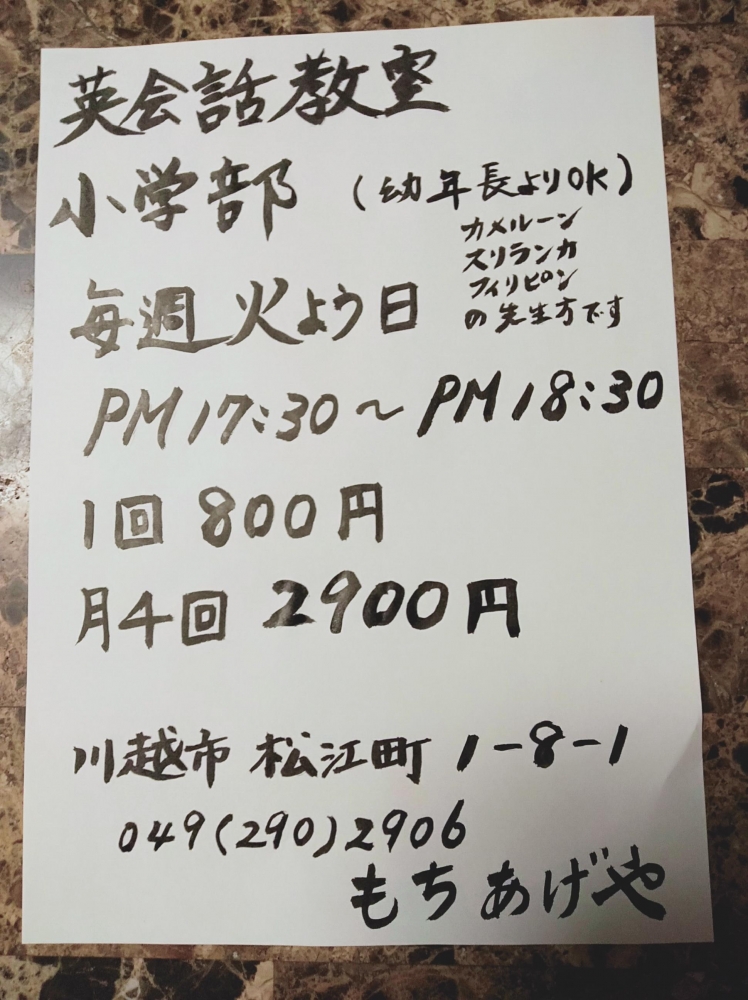 英会話教室
小学部 (幼年長よりOK)
カメルーン
スリランカ
フィリピン
の先生方です
毎週火よう日
PM17:30〜PM18:30
1回 800円
月4回 2900円
川越市 松江町 1-8-1
049(290)2906
もちあげや